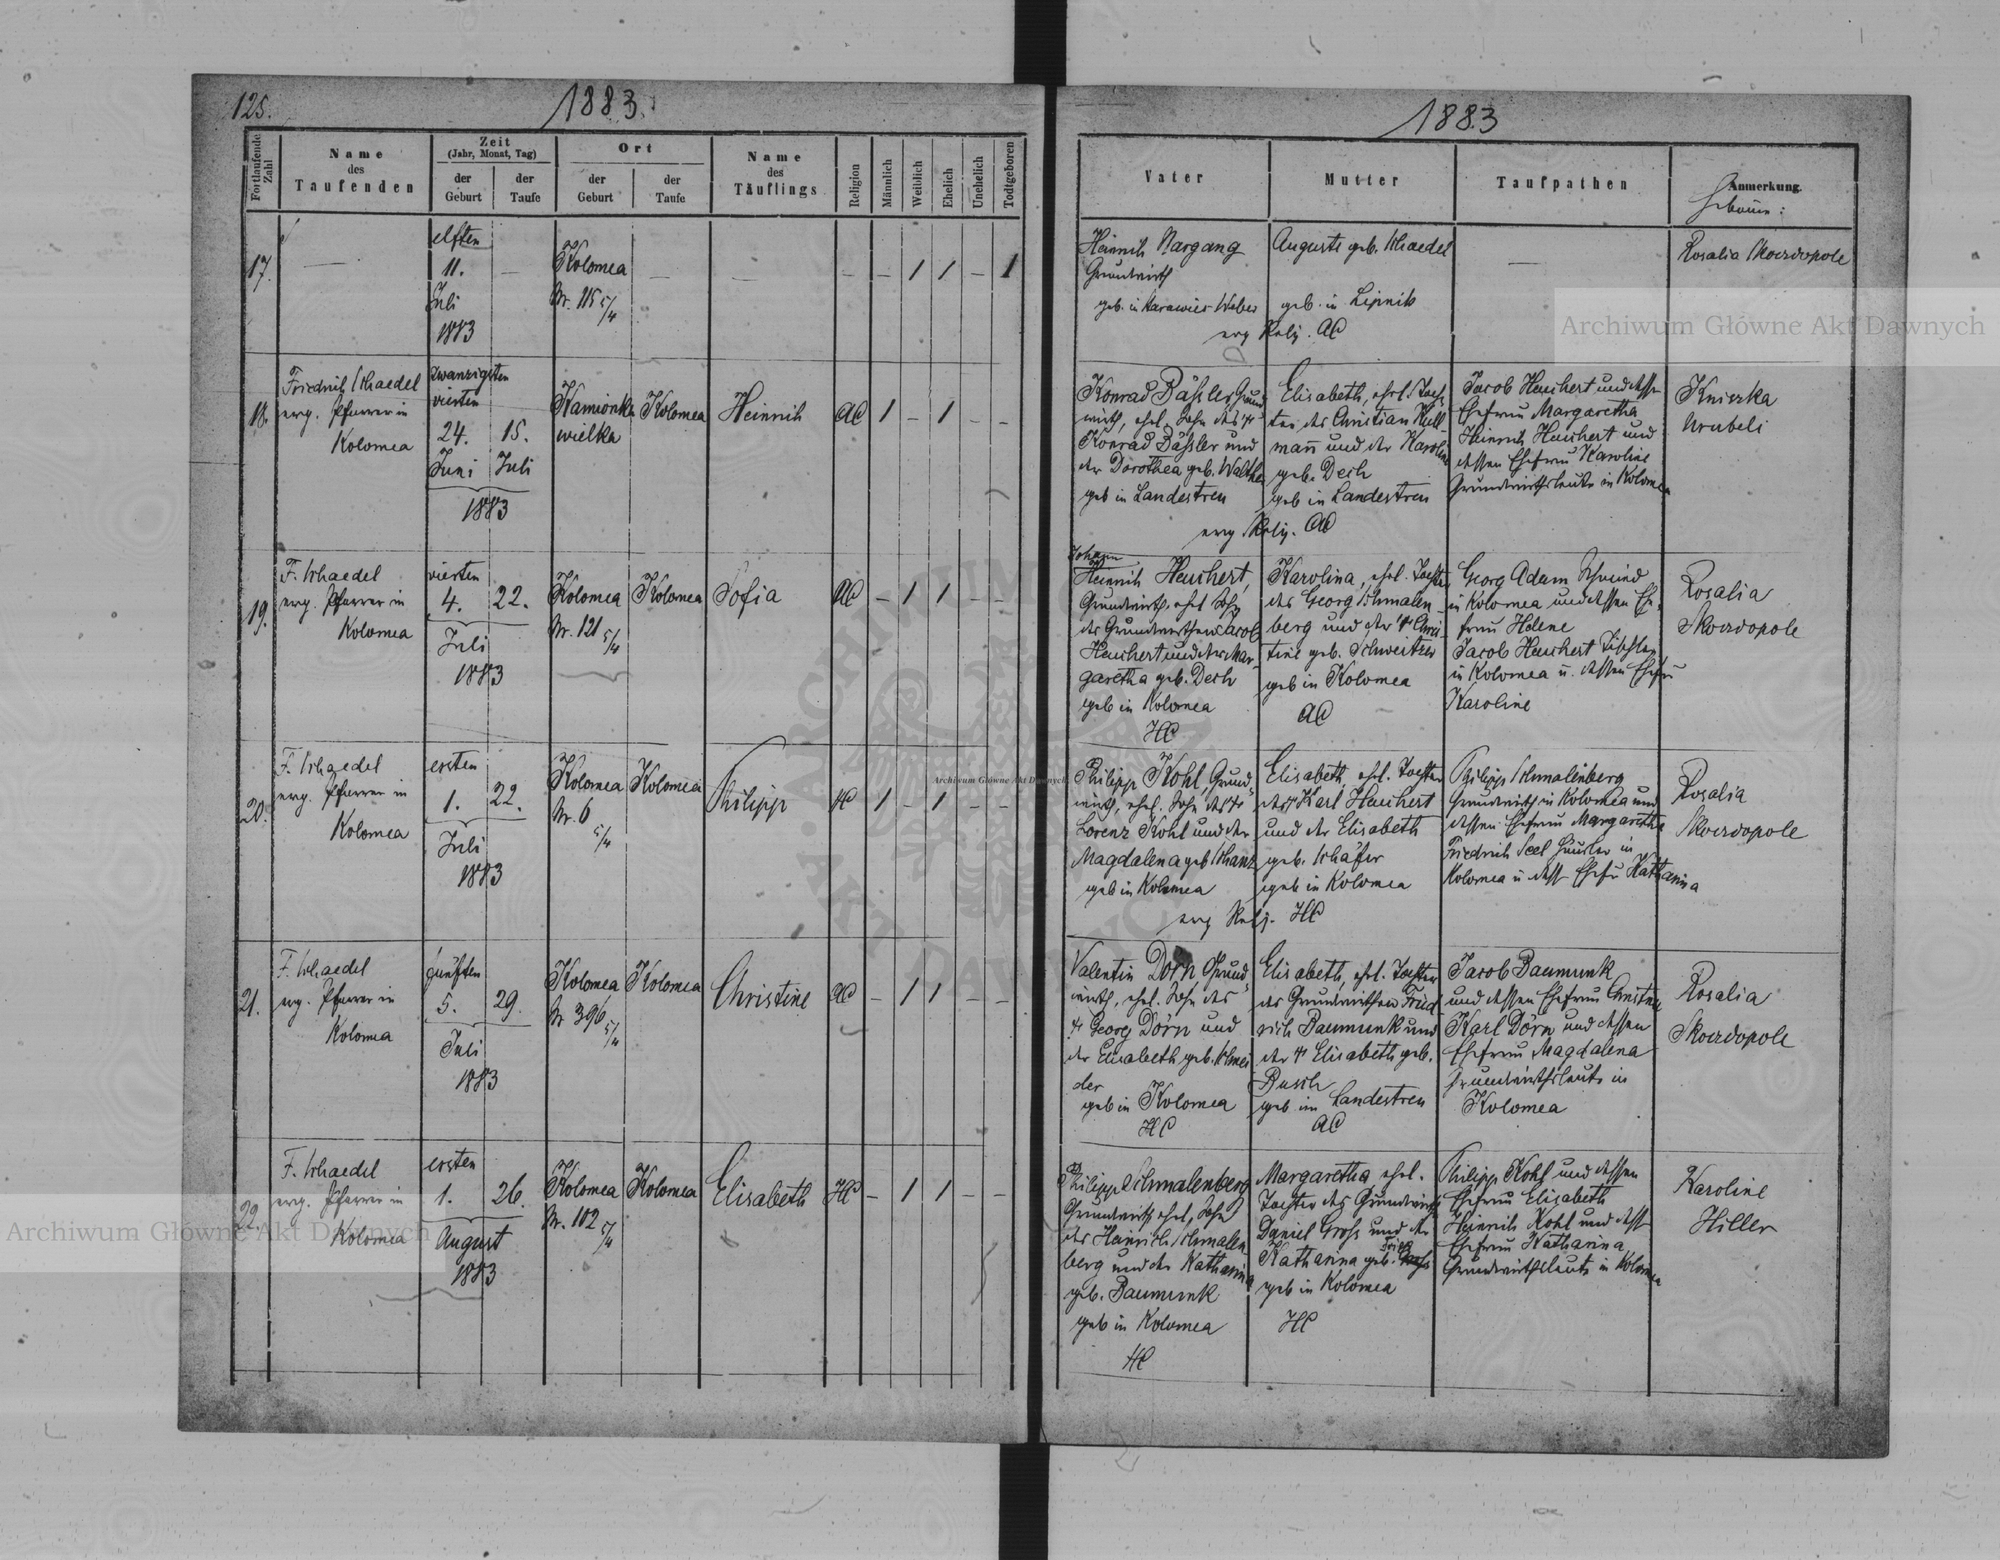 125.
1883.
Fortlaufende Zahl
Name des Taufenden
Zeit
(Jahr, Monat, Tag)
der Geburt
der Taufe
Ort
der Geburt
der Taufe
Name des Täuflings
Religion
Männlich
Weiblich
Ehelich
Unehelich
Todtgeboren
17.
—
elften
11.
—
Juli
1883
Kolomea
Nr. 115 5/4
—
—
—
—
1
1
—
1
18.
Friedrich Schaedel
evg. Pfarrer in
Kolomea
zwanzigsten
vierten
24.
15.
Juni
Juli
1883
Kamionka
wielka
Kolomea
Heinrich
AC
1
—
1
—
—
19.
F. Schaedel
evg. Pfarrer in
Kolomea
vierten
4.
22.
Juli
1883
Kolomea
Nr. 121 5/4
Kolomea
Sofia
AC
—
1
1
—
—
20.
F. Schaedel
evg. Pfarrer in
Kolomea
ersten
1.
22.
Juli
1883
Kolomea
Nr. 6
5/4
Kolomea
Philipp
HC
1
—
1
—
—
21.
F. Schaedel
evg. Pfarrer in
Kolomea
fünften
5.
29.
Juli
1883
Kolomea
Nr 396 5/4
Kolomea
Christine
AC
—
1
1
—
—
22.
F. Schaedel
evg. Pfarrer in
Kolomea
ersten
1.
26.
August
1883
Kolomea
Nr. 102 5/4
Kolomea
Elisabeth
HC
—
1
1
—
—
1883
Vater
Mutter
Taufpathen
Anmerkung.
Hebamme:
Heinrich Nargang
Grundwirth
geb. in
evg Relig. AC
Auguste geb. Schaedel
geb. in Lipnik
—
Rosalia Skoerdopole
Konrad Bäßler, Grund
wirth, ehel. Sohn des †
Konrad Bäßler und
der Dorothea geb. Walther
geb in Landestreu
evg Relig. AC
Elisabeth, ehel. Toch
ter des Christian Kull
mann und der Karoline
geb. Desh
geb in Landestreu
Jacob Heuchert und dessen
Ehefrau Margaretha
Heinrich Heuchert und
dessen Ehefrau Karoline
Grundwirthsleute in Kolomea
Knieska
Wrubeli
Johann
Heinrich Heuchert,
Grundwirth, ehel Sohn
des Grundwirthen Jacob
Heuchert und der Mar-
garetha geb. Desh
geb in Kolomea
HC
Karolina, ehel. Tochter
des Georg Schmalen-
berg und der † Chris-
tine geb. Schweitzer
geb in Kolomea
AC
Georg Adam Schmied
in Kolomea und dessen Ehe-
frau Helene
Jacob Heuchert Tischler
in Kolomea u. dessen Ehefrau
Karoline
Rosalia
Skoerdopole
Philipp Kohl, Grund-
wirth, ehel. Sohn des †
Lorenz Kohl und der
Magdalena geb Schanz
geb in Kolomea
evg Relig. HC
Elisabeth ehel. Tochter
des † Karl Heuchert
und der Elisabeth
geb. Schäfer
geb in Kolomea
Philipp Schmalenberg
Grundwirth in Kolomea und
dessen Ehefrau Margaretha
Friedrich Seel Häusler in
Kolomea u dess Ehefr Katharina
Rosalia
Skoerdopole
Valentin Dörn Grund-
wirth, ehel. Sohn des
† Georg Dörn und
der Elisabeth geb. Schnei
der
geb in Kolomea
HC
Elisabeth, ehel. Tochter
des Grundwirthen Fried
rich Baumunk und
der † Elisabeth geb.
Busch
geb in Landestreu
AC
Jacob Baumunk
und dessen Ehefrau Christine
Karl Dörn und dessen
Ehefrau Magdalena
Grundwirthsleute in
Kolomea
Rosalia
Skoerdopole
Philipp Schmalenberg
Grundwirth ehel. Sohn
des Heinrich Schmalen
berg und der Katharina
geb. Baumunk
geb in Kolomea
HC
Margaretha ehel.
Tochter des Grundwirth
Daniel Groß und der
Katharina geb.
geb in Kolomea
HC
Philipp Kohl und dessen
Ehefrau Elisabeth
Heinrich Kohl und dess
Ehefrau Katharina
Grundwirthsleute in Kolomea
Karoline
Hiller
Archiwum Główne Akt Dawnych
Archiwum Główne Akt Dawnych
Archiwum Główne Akt Dawnych